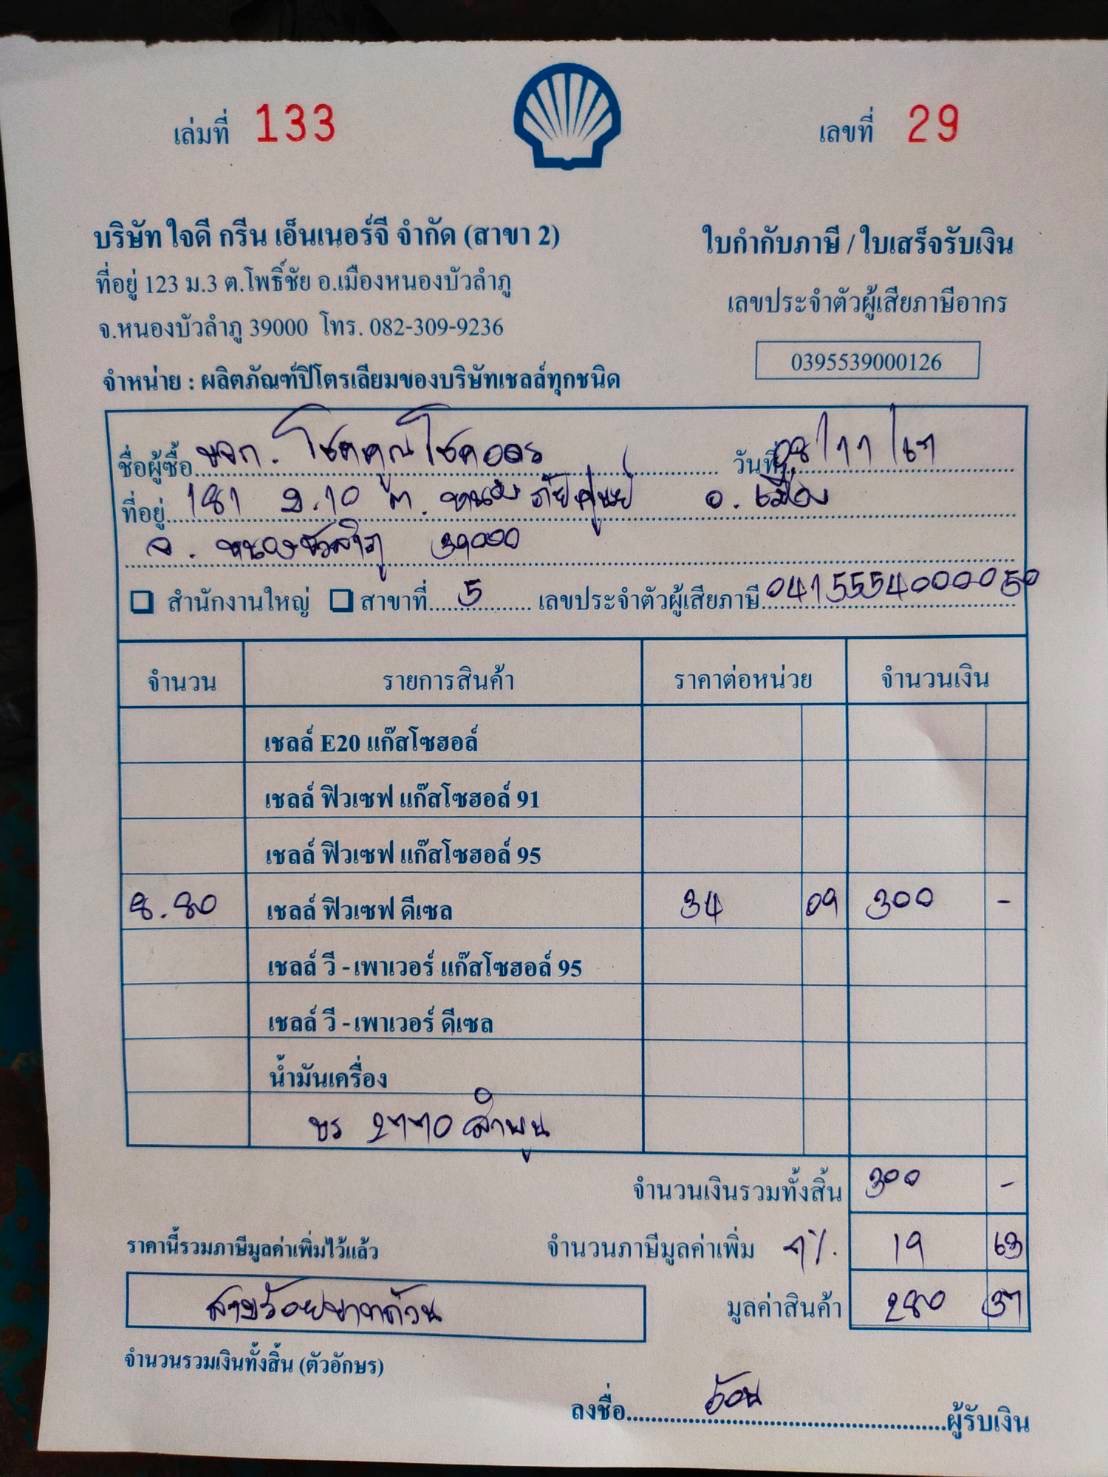 เล่มที่ 133
เลขที่ 29
บริษัท ใจดี กรีน เอ็นเนอร์จี จำกัด (สาขา 2)
ใบกำกับภาษี / ใบเสร็จรับเงิน
ที่อยู่ 123 ม.3 ต.โพธิ์ชัย อ.เมืองหนองบัวลำภู
เลขประจำตัวผู้เสียภาษีอากร
จ.หนองบัวลำภู 39000 โทร. 082-309-9236
0395539000126
จำหน่าย : ผลิตภัณฑ์ปิโตรเลียมของบริษัทเชลล์ทุกชนิด
ชื่อผู้ซื้อ หจก. โชคคูณโชค วันที่ 08/11/67
ที่อยู่ 181 ม.10 ต. หนองภัยศูนย์ อ. เมือง
จ. หนองบัวลำภู 39000
สำนักงานใหญ่ สาขาที่ 5 เลขประจำตัวผู้เสียภาษี 0415554000050
จำนวน รายการสินค้า ราคาต่อหน่วย จำนวนเงิน
เชลล์ E20 แก๊สโซฮอล์
เชลล์ ฟิวเซฟ แก๊สโซฮอล์ 91
เชลล์ ฟิวเซฟ แก๊สโซฮอล์ 95
8.80 เชลล์ ฟิวเซฟ ดีเซล 34 09 300 -
เชลล์ วี - เพาเวอร์ แก๊สโซฮอล์ 95
เชลล์ วี - เพาเวอร์ ดีเซล
น้ำมันเครื่อง
2770 ลำพูน
จำนวนเงินรวมทั้งสิ้น 300 -
ราคานี้รวมภาษีมูลค่าเพิ่มไว้แล้ว จำนวนภาษีมูลค่าเพิ่ม 7%. 19 63
สามร้อยบาทถ้วน มูลค่าสินค้า 280 37
จำนวนรวมเงินทั้งสิ้น (ตัวอักษร)
ลงชื่อ ผู้รับเงิน